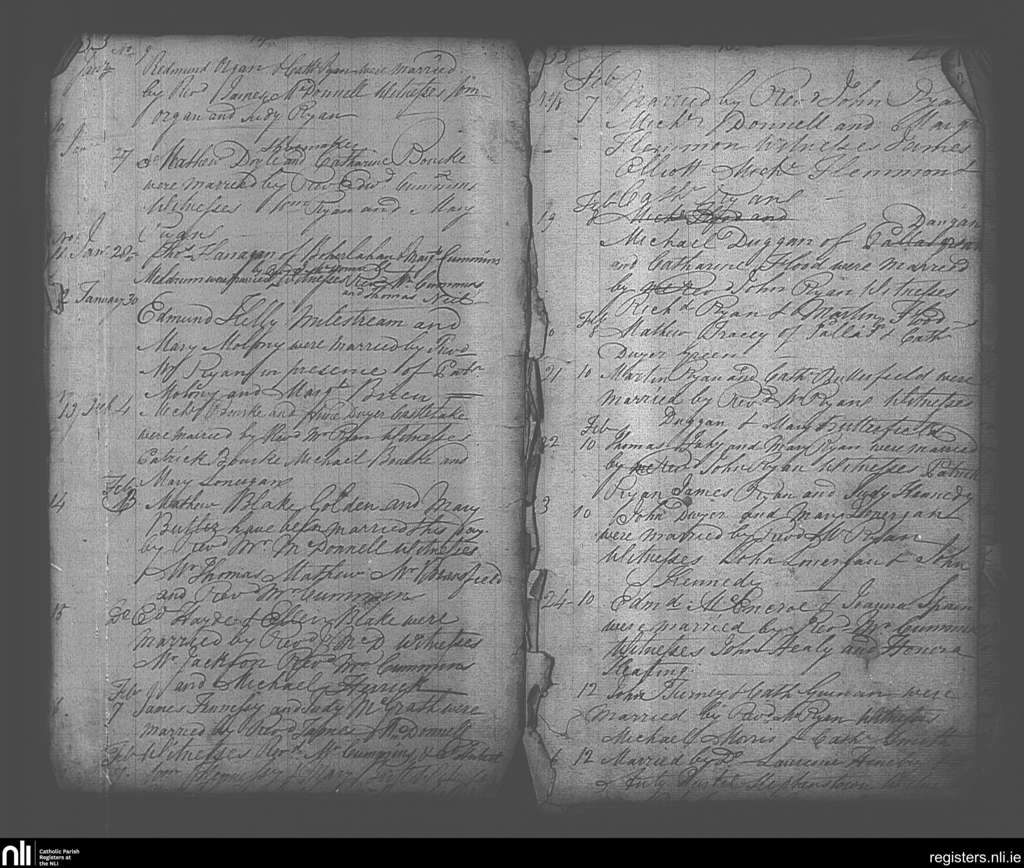 33
No 9
Jany
Redmund Ryan & Cath Ryan were married
by Revd James McDonnell Witnesses
organ and Judy Ryan
10
Jany
Shoemaker
27 Mathew Doyle and Catharine Bourke
were married by Revd Edwd Cummins
Witnesses Wm Ryan and Mary
Ryan
No
11 Jany 28 Thos Flanagan of Boherlahan & Margt Cummins
Meldrum were married Witnesses Revd Mr Cummins
and Thomas Neil
12 January 30
Edmund Kelly Milestream and
Mary Molony were married by Revd
Mr Ryan in presence of Patk
Molony and Margt Brien
13 Feb 4 Michl Bourke and Dwyer Castlelake
were married by Revd Mr Ryan Witnesses
Patrick Bourke Michael Bourke and
Mary Lonergan
Feb
14 Mathew Blake Golden and Mary
Butler have been married this Day
by Revd Mr McDonnell Witnesses
Mr Thomas Mathew Mr Bansfield
and Revd Mr Cummins
15
Do Ed Hayde & Ellen Blake were
married by Revd J McD Witnesses
Mr Jackson Revd Mr Cummins
and Michael Herrick
Feb
7 James and Judy McGrath were
married by Revd James McDonnell
Feb Witnesses Revd Mr Cummins &
33
Feb
18 7 Married by Revd John Ryan
Michl Donnell and Margt
Flemmon Witnesses James
Elliott Michl Flemmond
Cath Ryan
Feb
19 8 Michl Flood and
Dangan
Michael Duggan of Pallasgrean
and Catharine Flood were married
by the Revd John Ryan Witnesses
Richd Ryan & Martin Flood
Feb
Mathew Tracey of Pallas & Cath
Dwyer Green
21 10 Martin Ryan and Cath Butterfield were
married by Revd Mr Ryan Witnesses
Duggan & Mary Butterfield
Feb
22 10 Thomas Fahy and Mary Ryan were married
by the Revd John Ryan Witnesses Patrick
Ryan James Ryan and Judy Kennedy
3 10 John Dwyer and Mary Lonergan
were married by Revd Mr Ryan
Witnesses John Lonergan & John
Kennedy
24 10 Edmd McEncroe & Joanna Spain
were married by Revd Mr Cummins
Witnesses John Healy and Honora
Keating
12 John Tierney & Cath Guinan were
Married by Revd Mr Ryan Witnesses
Michael Morris & Cath Smith
6 12 Married by Do Laurence
nli
Catholic Parish
Registers at
the NLI
registers.nli.ie